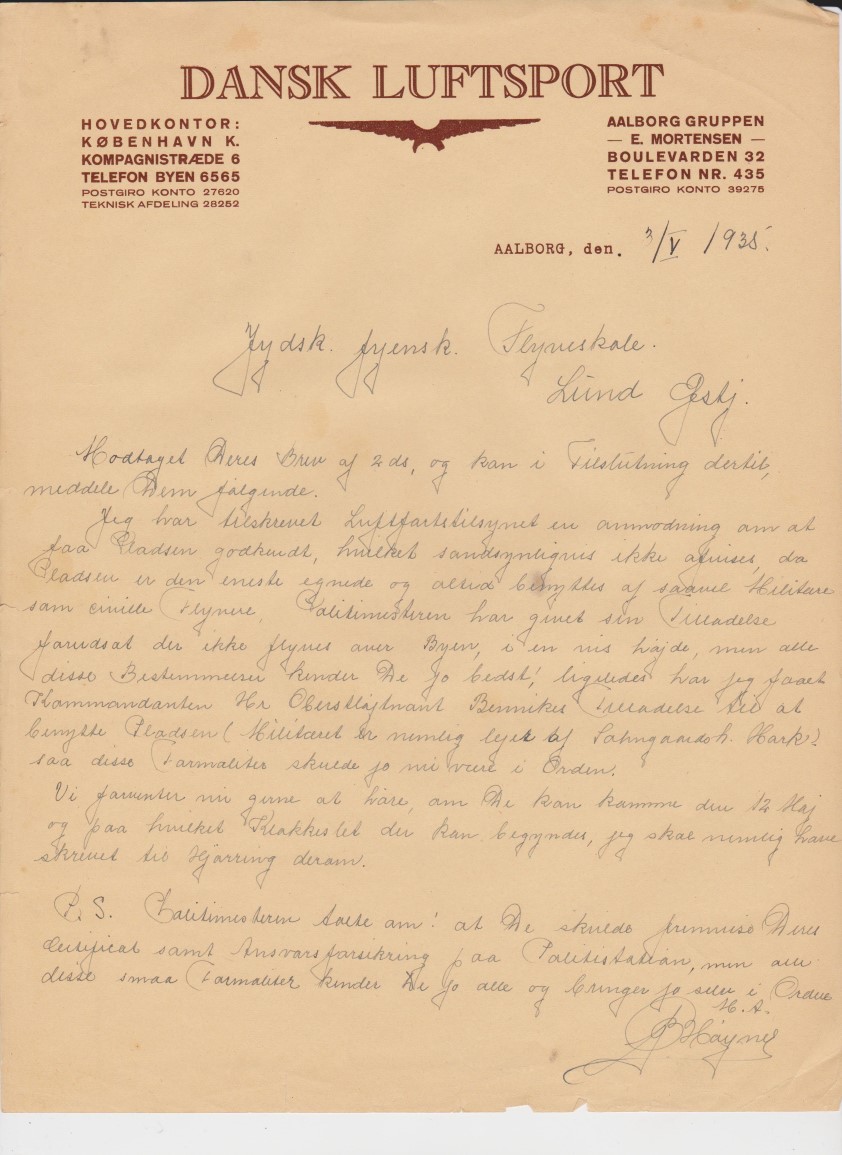 DANSK LUFTSPORT
HOVEDKONTOR:
KØBENHAVN K.
KOMPAGNISTRÆDE 6
TELEFON BYEN 6565
POSTGIRO KONTO 27620
TEKNISK AFDELING 28252
AALBORG GRUPPEN
— E. MORTENSEN —
BOULEVARDEN 32
TELEFON NR. 435
POSTGIRO KONTO 39275
AALBORG, den. 3/V 1935.
Jydsk. fyensk. Flyveskole.
Lund
Modtaget Deres Brev af 2 ds, og kan i Tilslutning dertil,
meddele Dem følgende.
Jeg har tilskrevet Luftfartstilsynet en anmodning om at
faa Pladsen godkendt, hvilket sandsynligvis ikke afvises, da
Pladsen er den eneste egnede og altid benyttes af saavel Militære
som civile Flyvere, Politimesteren har givet sin Tilladelse
forudsat der ikke flyves over Byen, i en vis højde, men alle
disse Bestemmelser kender De jo bedst!, ligeledes har jeg faaet
Kommandanten Hr Oberstløjtnant Bennikes Tilladelse til at
benytte Pladsen (Militæret er nemlig lejer af Mark)
saa disse Formaliter skulde jo nu være i Orden.
Vi forventer nu gerne at høre, om De kan komme den 12 Maj
og paa hvilket Klokkeslet der kan begyndes, jeg skal nemlig have
skrevet til Hjørring derom.
P.S. Politimesteren talte om! at De skulde fremvise Deres
Certificat samt Ansvarsforsikring paa Politistation, men alle
disse smaa Formaliter kender De jo alle og bringer jo selv i Orden